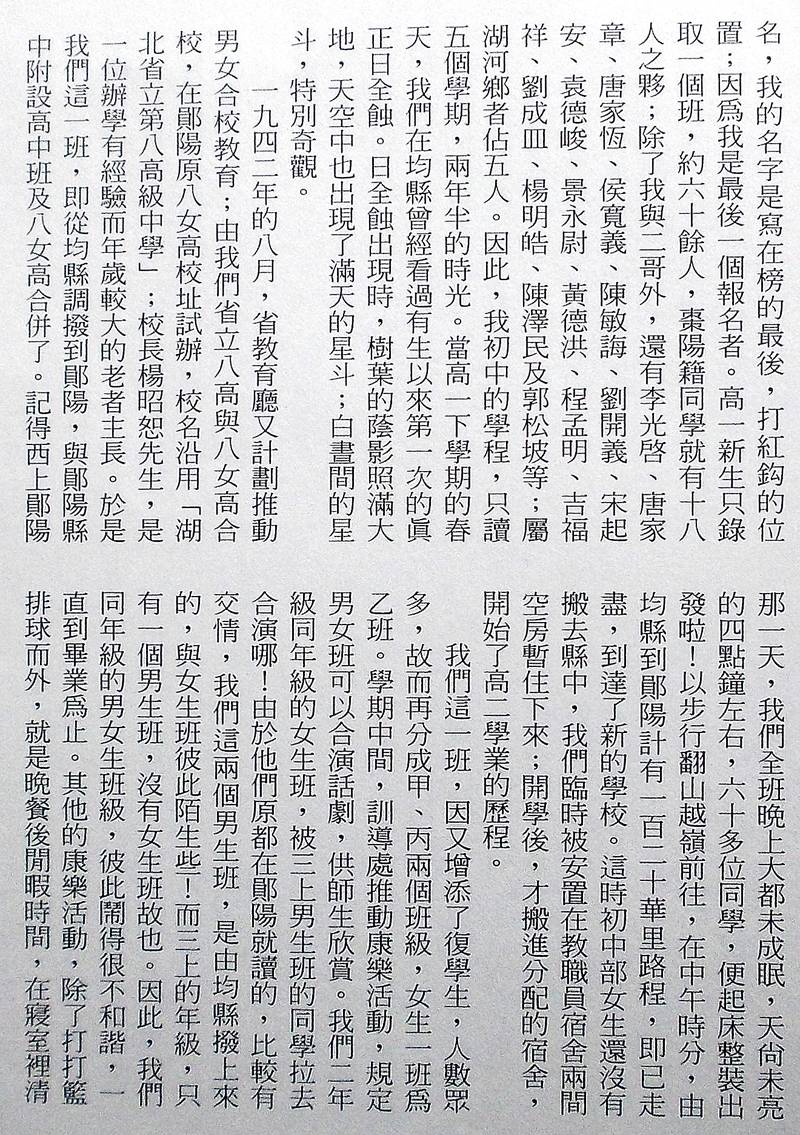 名，我的名字是寫在榜的最後，打紅鈎的位
置；因爲我是最後一個報名者。高一新生只錄
取一個班，約六十餘人，棗陽籍同學就有十八
人之夥；除了我與二哥外，還有李光啓、唐家
章、唐家恆、侯寬義、陳敏誨、劉開義、宋起
安、袁德峻、景永尉、黃德洪、程孟明、吉福
祥、劉成皿、楊明皓、陳澤民及郭松坡等；屬
湖河鄉者佔五人。因此，我初中的學程，只讀
五個學期，兩年半的時光。當高一下學期的春
天，我們在均縣曾經看過有生以來第一次的眞
正日全蝕。日全蝕出現時，樹葉的蔭影照滿大
地，天空中也出現了滿天的星斗；白晝間的星
斗，特別奇觀。
一九四二年的八月，省教育廳又計劃推動
男女合校教育；由我們省立八高與八女高合
校，在鄖陽原八女高校址試辦，校名沿用「湖
北省立第八高級中學」；校長楊昭恕先生，是
一位辦學有經驗而年歲較大的老者主長。於是
我們這一班，即從均縣調撥到鄖陽，與鄖陽縣
中附設高中班及八女高合併了。記得西上鄖陽
那一天，我們全班晚上大都未成眠，天尚未亮
的四點鐘左右，六十多位同學，便起床整裝出
發啦！以步行翻山越嶺前往，在中午時分，由
均縣到鄖陽計有一百二十華里路程，即已走
盡，到達了新的學校。這時初中部女生還沒有
搬去縣中，我們臨時被安置在教職員宿舍兩間
空房暫住下來；開學後，才搬進分配的宿舍，
開始了高二學業的歷程。
我們這一班，因又增添了復學生，人數眾
多，故而再分成甲、丙兩個班級，女生一班爲
乙班。學期中間，訓導處推動康樂活動，規定
男女班可以合演話劇，供師生欣賞。我們二年
級同年級的女生班，被三上男生班的同學拉去
合演哪！由於他們原都在鄖陽就讀的，比較有
交情，我們這兩個男生班，是由均縣撥上來
的，與女生班彼此陌生些！而三上的年級，只
有一個男生班，沒有女生班故也。因此，我們
同年級的男女生班級，彼此鬧得很不和諧，一
直到畢業爲止。其他的康樂活動，除了打打籃
排球而外，就是晚餐後閒暇時間，在寢室裡清